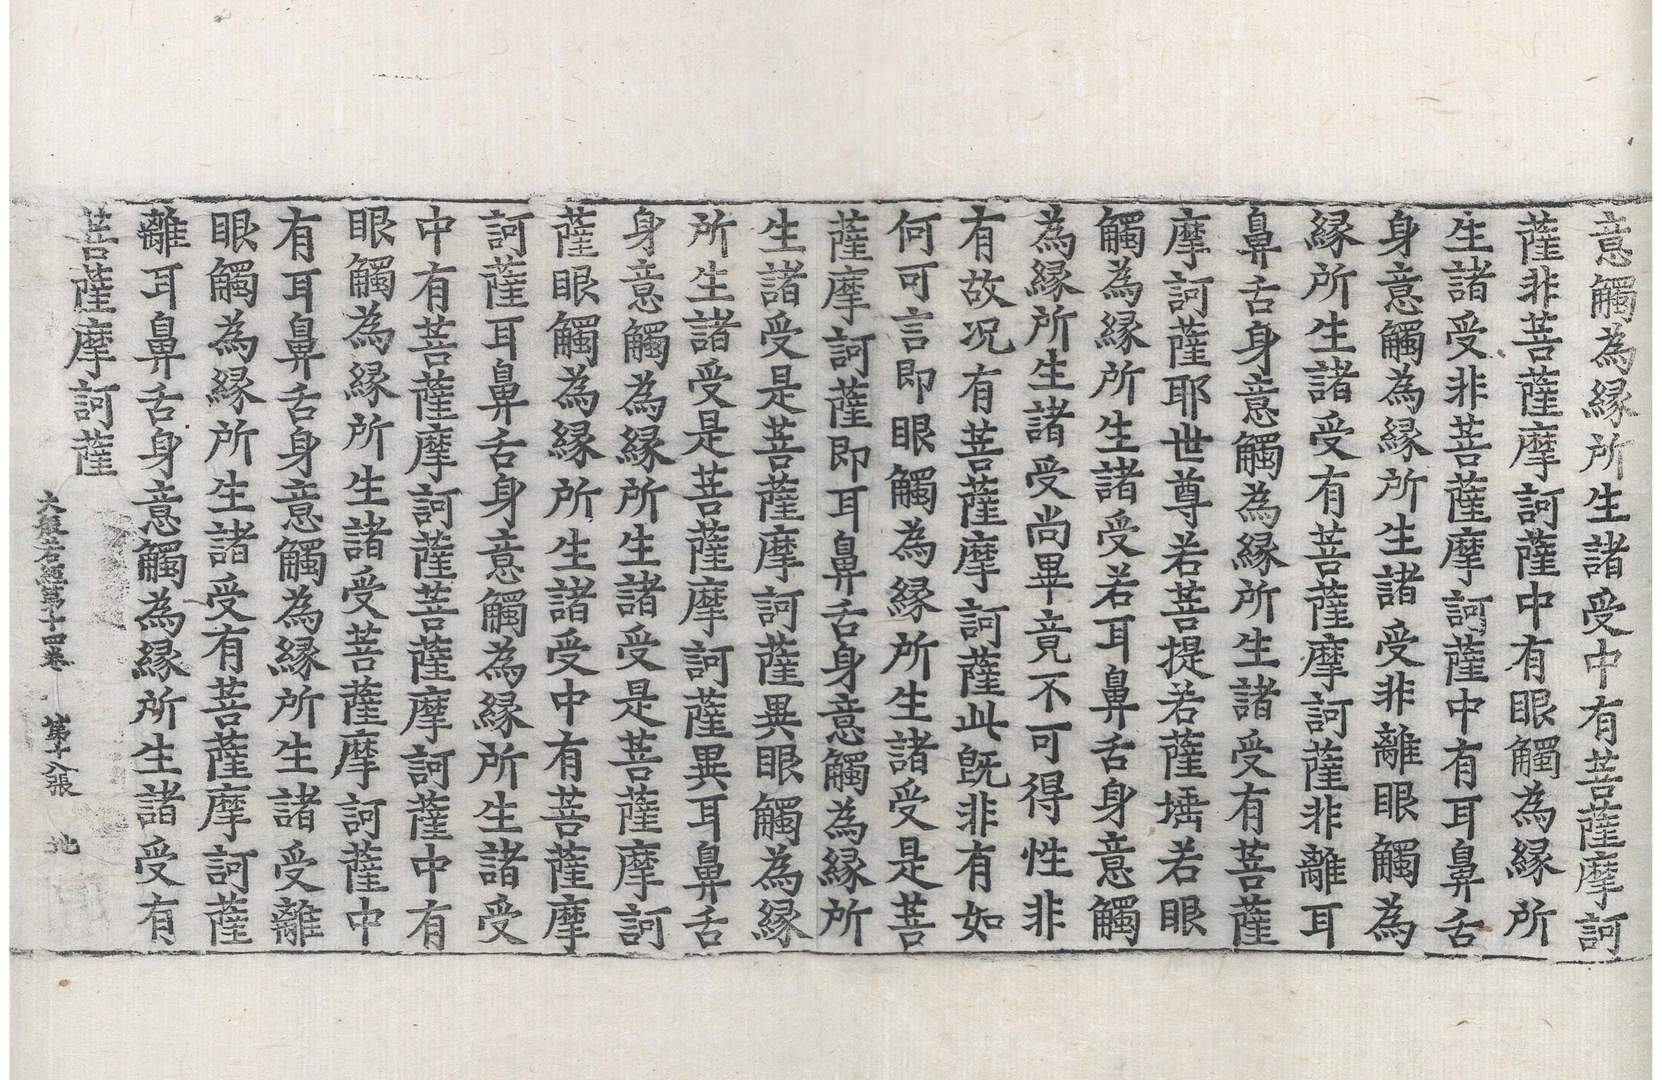 意觸為緣所生諸受中有菩薩摩訶
薩非菩薩摩訶薩中有眼觸為緣所
生諸受非菩薩摩訶薩中有耳鼻舌
身意觸為緣所生諸受非離眼觸為
緣所生諸受有菩薩摩訶薩非離耳
鼻舌身意觸為緣所生諸受有菩薩
摩訶薩耶世尊若菩提若薩埵若眼
觸為緣所生諸受若耳鼻舌身意觸
為緣所生諸受尚畢竟不可得性非
有故况有菩薩摩訶薩此既非有如
何可言即眼觸為緣所生諸受是菩
薩摩訶薩即耳鼻舌身意觸為緣所
生諸受是菩薩摩訶薩異眼觸為緣
所生諸受是菩薩摩訶薩異耳鼻舌
身意觸為緣所生諸受是菩薩摩訶
薩眼觸為緣所生諸受中有菩薩摩
訶薩耳鼻舌身意觸為緣所生諸受
中有菩薩摩訶薩菩薩摩訶薩中有
眼觸為緣所生諸受菩薩摩訶薩中
有耳鼻舌身意觸為緣所生諸受離
眼觸為緣所生諸受有菩薩摩訶薩
離耳鼻舌身意觸為緣所生諸受有
菩薩摩訶薩
大般若經第十四卷 第十八張 地